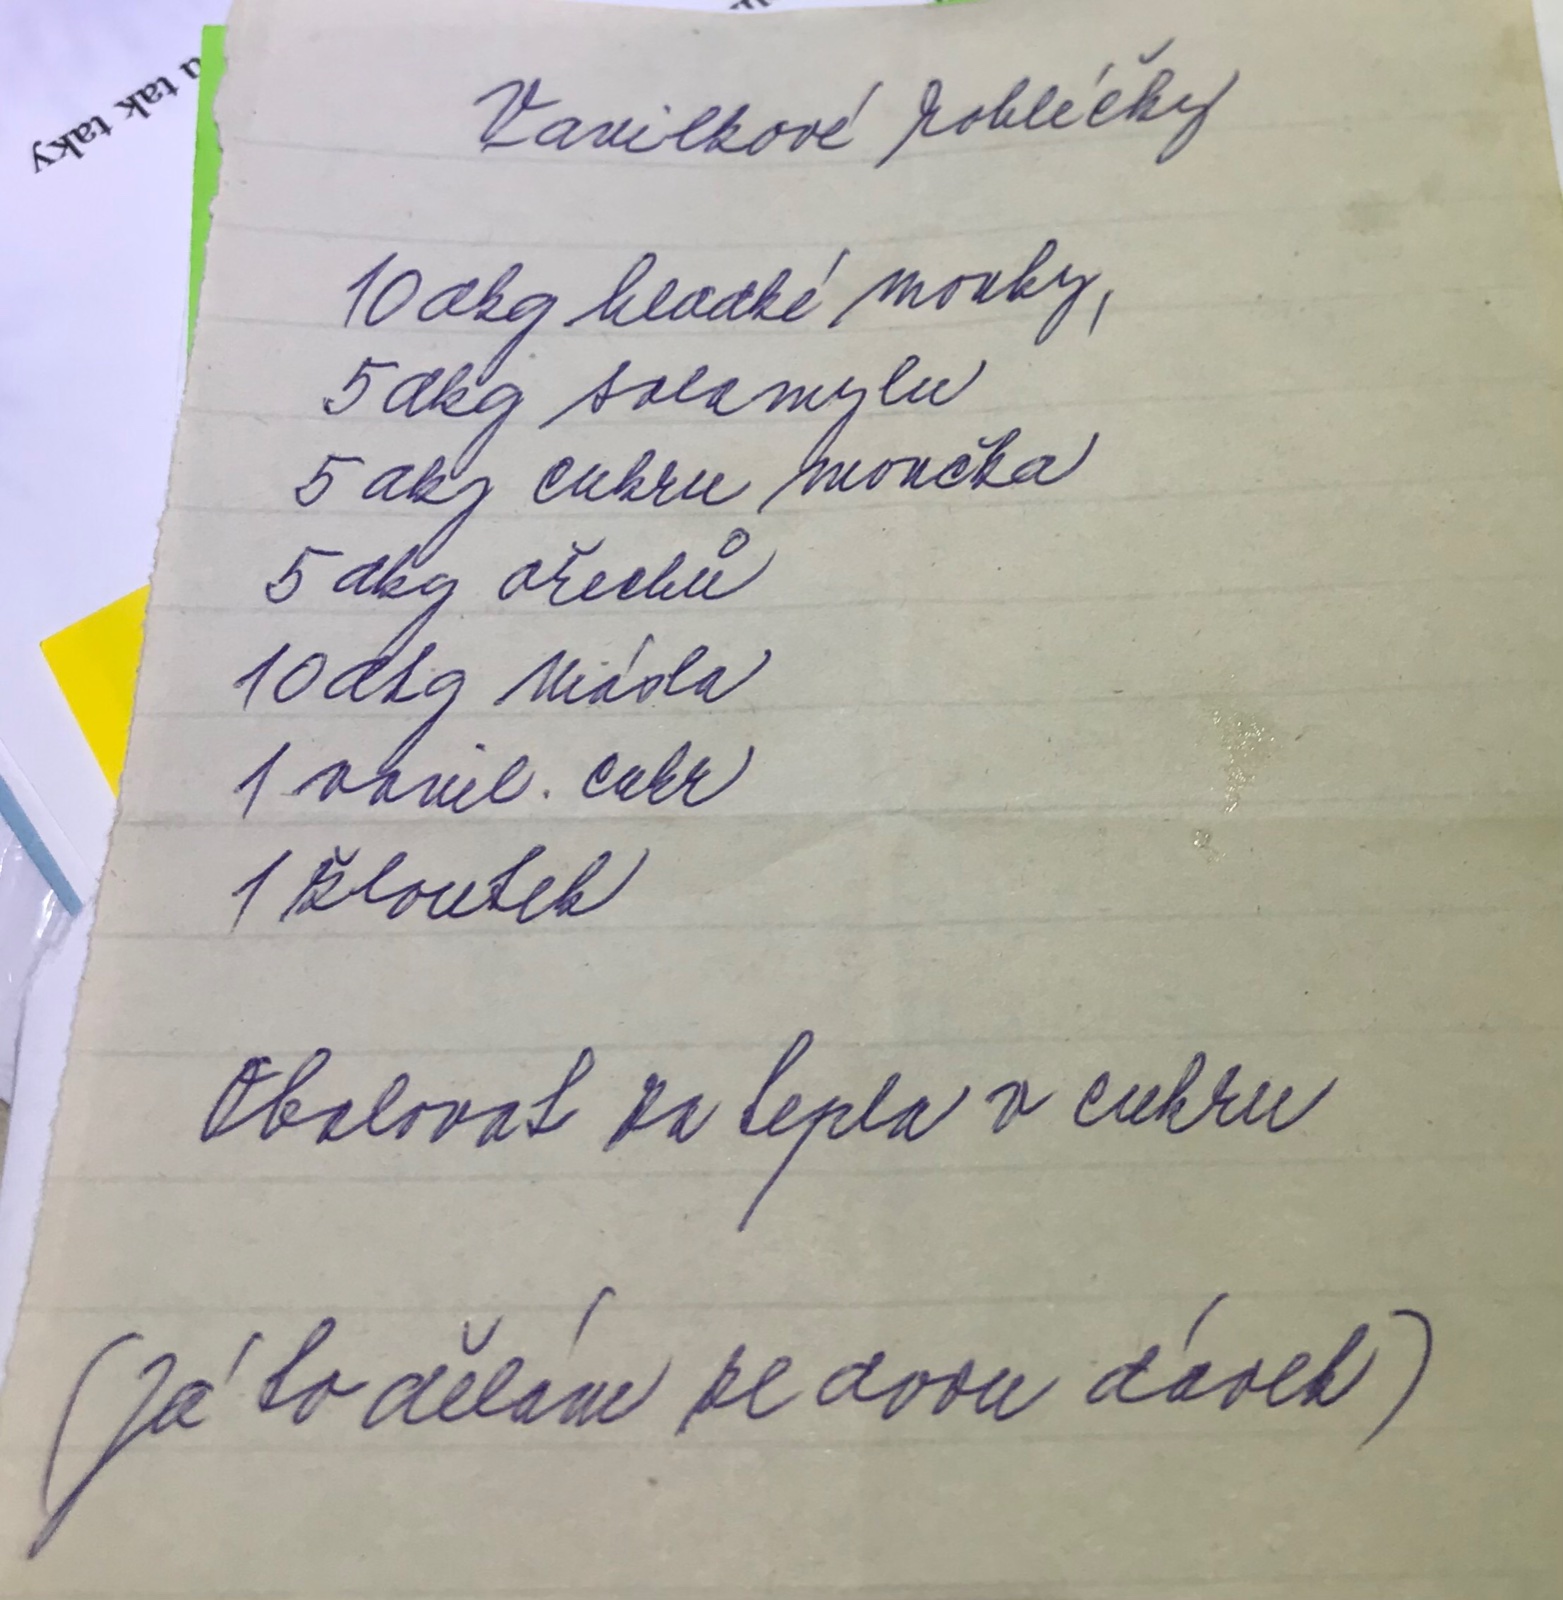 u tak taky
Vanilkové rohlíčky
10 dkg hladké mouky,
5 dkg solamylu
5 dkg cukru moučka
5 dkg ořechů
10 dkg másla
1 vanil. cukr
1 žloutek
Obalovat za tepla v cukru
(Já to dělám ze dvou dávek)